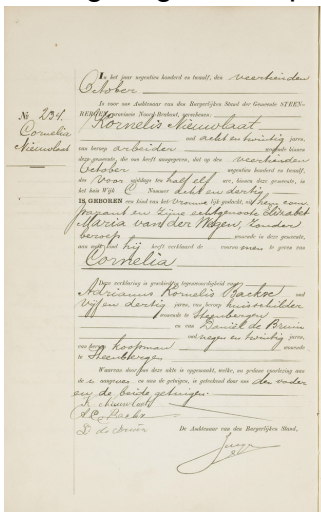 No 234.
Cornelia
Nieuwlaat
In het jaar negentien honderd en twaalf, den veertienden
October
is voor ons Ambtenaar van den Burgerlijken Stand der Gemeente STEEN-
BERGEN, provincie Noord-Brabant, verschenen:
Kornelis Nieuwlaat
oud acht en twintig jaren,
van beroep arbeider wonende binnen
deze gemeente, die ons heeft aangegeven, dat op den veertienden
October negentien honderd en twaalf,
des voor middags ten half elf ure, binnen deze gemeente, in
het huis Wijk C Nummer acht en dertig
IS GEBOREN een kind van het vrouwelijke geslacht, uit hem com
parant en zijne echtgenoote Elizabet
Maria van der Wegen, zonder
beroep wonende in deze gemeente,
aan welk kind hij heeft verklaard de voornamen te geven van
Cornelia
Deze verklaring is geschied in tegenwoordigheid van
Adrianus Kornelis Backx oud
vijf en dertig jaren, van beroep huisschilder
wonende te Steenbergen
en van Daniël de Bruin
oud negen en twintig jaren,
van beroep koopman wonende
te Steenbergen
Waarvan door ons deze akte is opgemaakt, welke, na gedane voorlezing aan
de aangever en aan de getuigen, is geteekend door ons den vader
en de beide getuigen.
K. Nieuwlaat
A.C. Backx
D. de Bruin
De Ambtenaar van den Burgerlijken Stand,